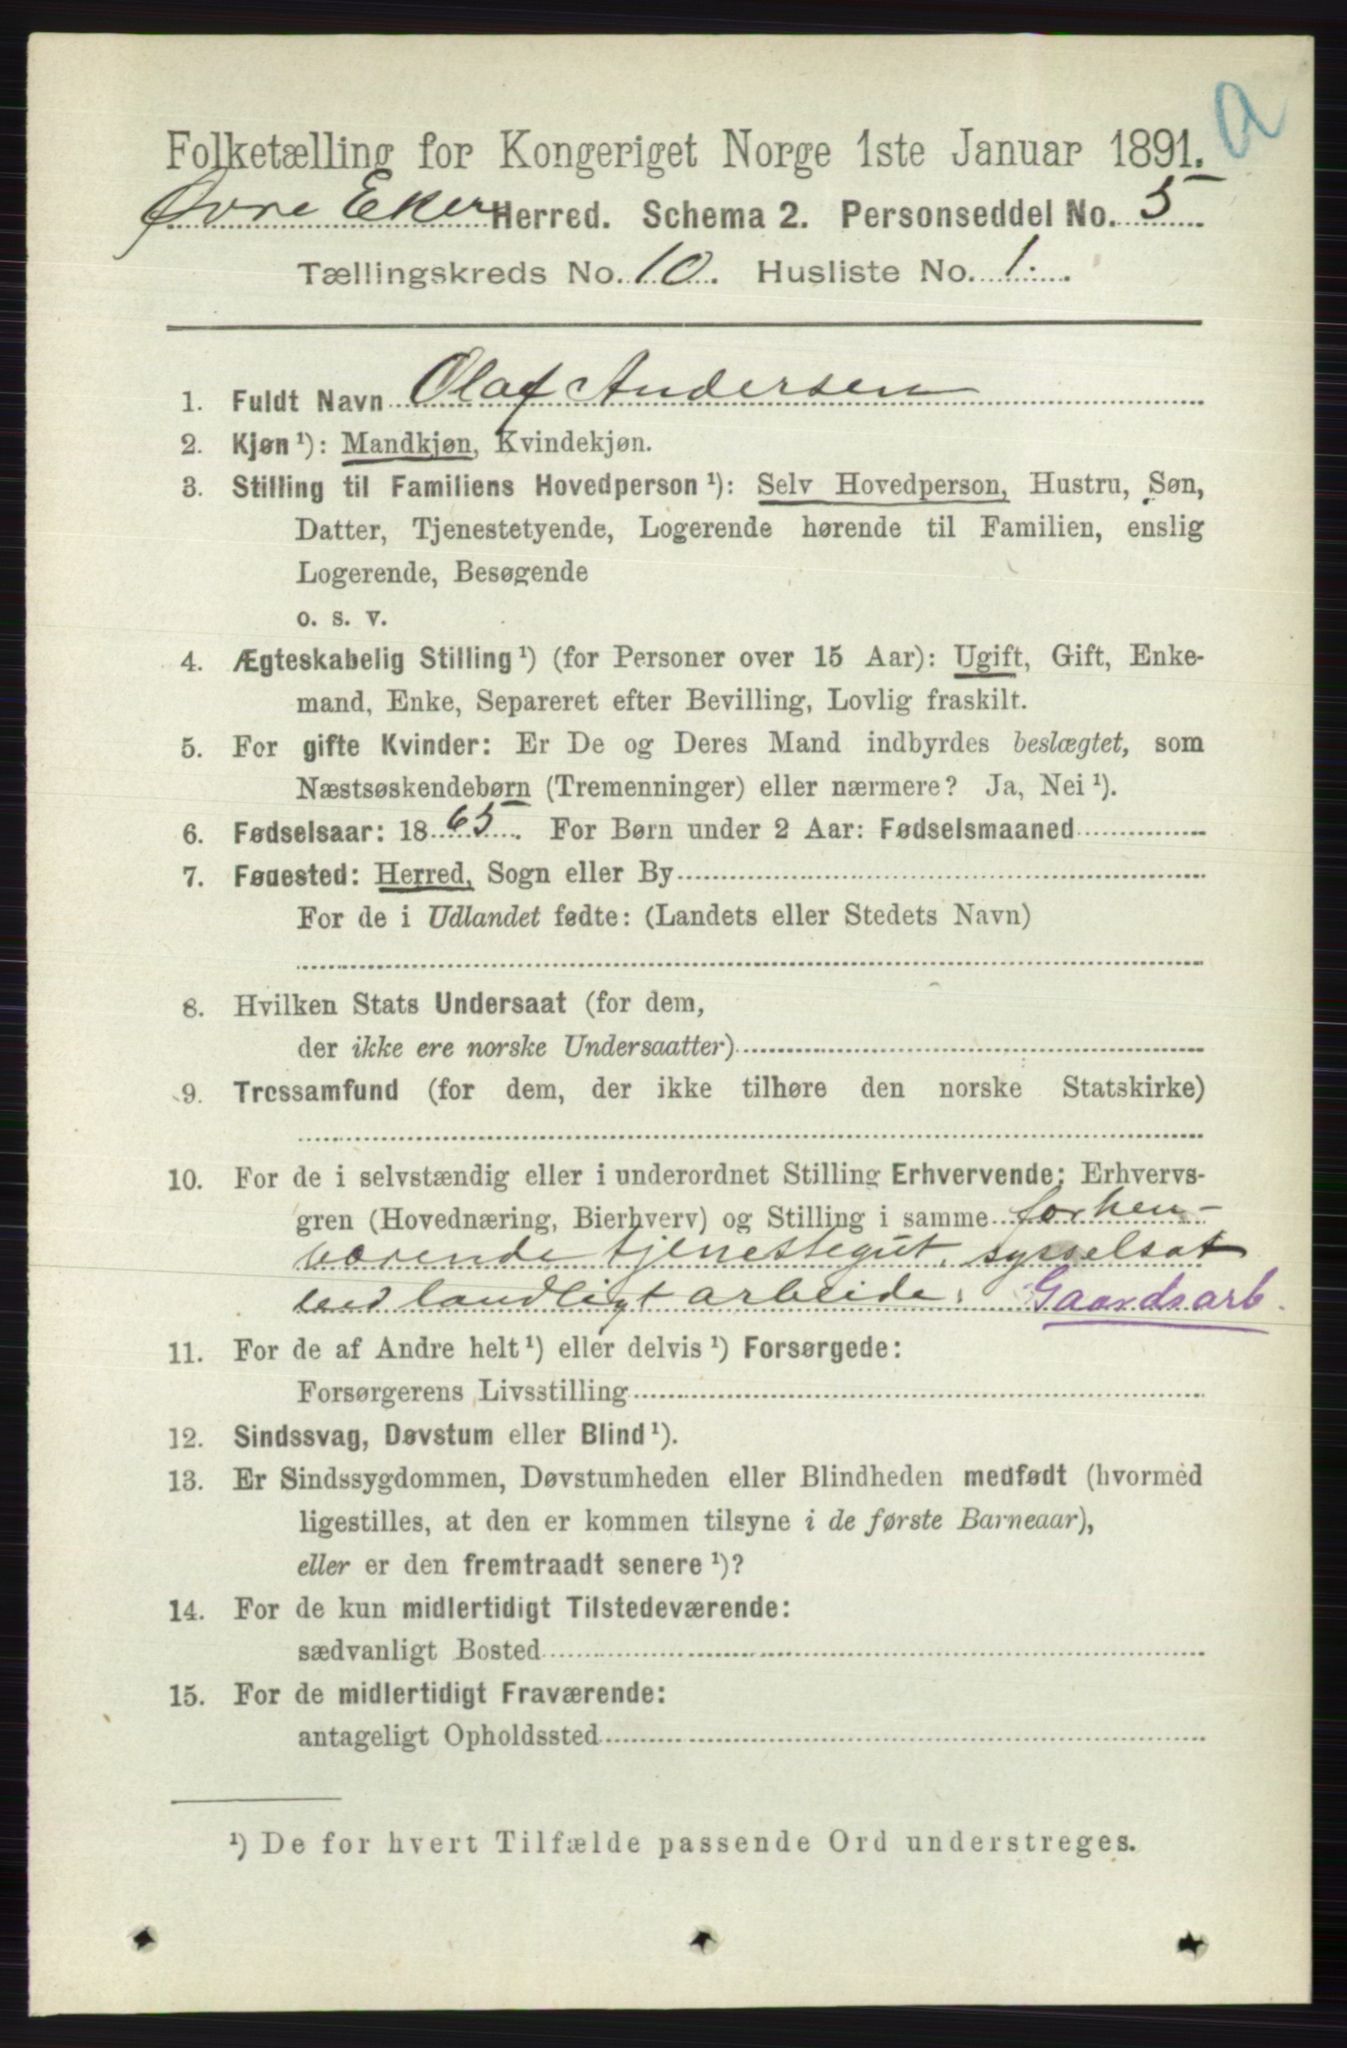 a
Folketælling for Kongeriget Norge 1ste Januar 1891.
Øvre Eker Herred. Schema 2. Personseddel No. 5
Tællingskreds No. 10. Husliste No. 1.
1. Fuldt Navn Olaf Andersen
2. Kjøn¹): Mandkjøn, Kvindekjøn.
3. Stilling til Familiens Hovedperson¹): Selv Hovedperson, Hustru, Søn,
Datter, Tjenestetyende, Logerende hørende til Familien, enslig
Logerende, Besøgende
o. s. v.
4. Ægteskabelig Stilling¹) (for Personer over 15 Aar): Ugift, Gift, Enke-
mand, Enke, Separeret efter Bevilling, Lovlig fraskilt.
5. For gifte Kvinder: Er De og Deres Mand indbyrdes beslægtet, som
Næstsøskendebørn (Tremenninger) eller nærmere? Ja, Nei¹).
6. Fødselsaar: 1865. For Børn under 2 Aar: Fødselsmaaned
7. Fødested: Herred, Sogn eller By
For de i Udlandet fødte: (Landets eller Stedets Navn)
8. Hvilken Stats Undersaat (for dem,
der ikke ere norske Undersaatter)
9. Trossamfund (for dem, der ikke tilhøre den norske Statskirke)
10. For de i selvstændig eller i underordnet Stilling Erhvervende: Erhvervs-
gren (Hovednæring, Bierhverv) og Stilling i samme forhen-
værende tjenestegut, sysselsat
ved landligt arbeide. Gaardsarb.
11. For de af Andre helt¹) eller delvis¹) Forsørgede:
Forsørgerens Livsstilling
12. Sindssvag, Døvstum eller Blind¹).
13. Er Sindssygdommen, Døvstumheden eller Blindheden medfødt (hvormed
ligestilles, at den er kommen tilsyne i de første Barneaar),
eller er den fremtraadt senere¹)?
14. For de kun midlertidigt Tilstedeværende:
sædvanligt Bosted
15. For de midlertidigt Fraværende:
antageligt Opholdssted
¹) De for hvert Tilfælde passende Ord understreges.